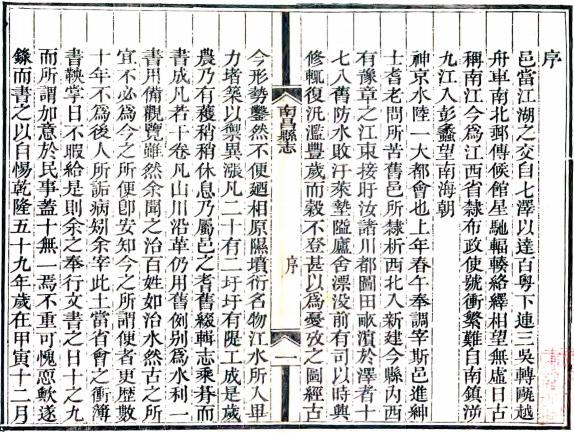 序
邑當江湖之交自七澤以達百粵下連三吳轉甌越
舟車南北郵傳候館星馳輻輳絡繹相望無虛日古
稱南江今爲江西省隸布政使號衝繁難自南鎮泝
九江入彭蠡望南海朝
神京水陸一大都會也上年春午奉調宰斯邑進紳
士耆老問所苦舊邑所隸析西北入新建今縣內西
有豫章之江東接旴汝諸川都圖田畝濱於澤者十
七八舊防水敗汙萊墊隘廬舍漂没前有司以時興
修輒復汎濫豐歲而穀不登甚以爲憂攷之圖經古
南昌縣志
序
一
今形勢鑿然不便廼相原隰墳衍名物江水所入畢
力堵築以禦異漲凡二十有二圩圩有隄工成是歲
農乃有穫稍稍休息乃屬邑之耆舊綴輯志乘朞而
書成凡若干卷凡山川沿革仍用舊例别爲水利一
書用備觀覽雖然余聞之治百姓如治水然古之所
宜不必爲今之所便卽安知今之所謂便者更歷數
十年不爲後人所詬病矧余宰此土當省會之衝簿
書鞅掌日不暇給是則余之奉行文書之日十之九
而所謂加意於民事葢十無一焉不重可愧恧歟遂
錄而書之以自惕乾隆五十九年歲在甲寅十二月